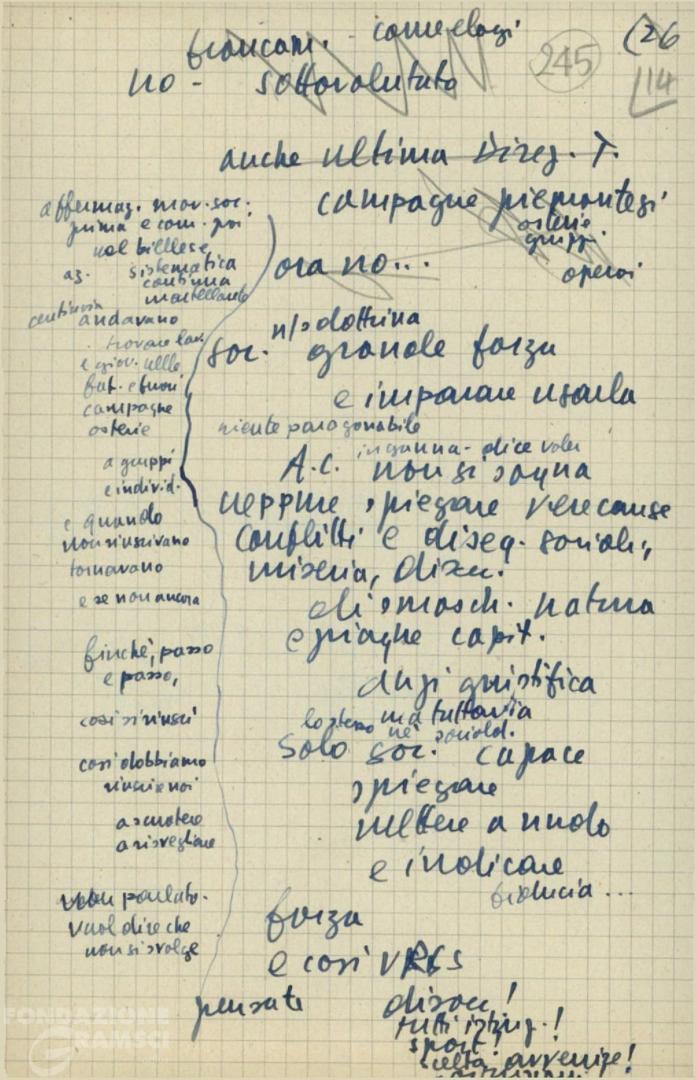 come elogi
(26
no - sottovalutato
245
14
anche ultima Direz. T.
campagne piemontesi
osterie
gruppi
operai
ora no...
n/s dottrina
soc. grande forza
e imparare usarla
niente paragonabile
inganna - dice voler
A.c. non si sogna
neppure spiegare vere cause
conflitti e diseq. sociali,
miseria, disoc.
di smasch. natura
e piaghe capit.
anzi giustifica
ma tuttavia
lo stesso nè sociald.
Solo soc. capace
spiegare
mettere a nudo
e indicare
fiducia...
forza
e così URSS
pensate disocc!
tutti istruz.!
sport!
scelta avvenire!
affermaz. mov. soc.
prima e com. poi
nel biellese
az. sistematica
continua
martellante
andavano
trovare lav.
campagne
osterie
a gruppi
e individ.
e quando
non riuscivano
tornavano
e se non ancora
finchè, passo
e passo,
così si riuscì
così dobbiamo
riuscire noi
a scuotere
a risvegliare
parlato.
vuol dire che
non si svolge
FONDAZIONE
GRAMSCI